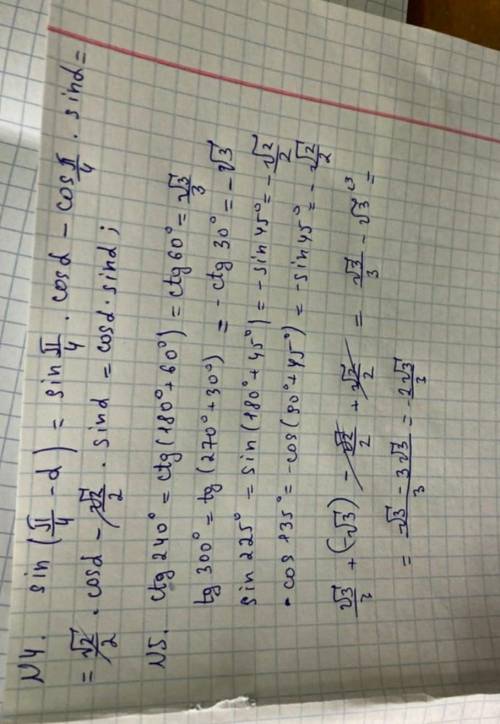 N4. sin(π/4 - α) = sin π/4 · cosα - cos π/4 · sinα =
= √2/2 · cosα - √2/2 · sinα = cosα · sinα;
N5. ctg 240° = ctg(180° + 60°) = ctg 60° = √3/3
tg 300° = tg(270° + 30°) = -ctg 30° = -√3
sin 225° = sin(180° + 45°) = -sin 45° = -√2/2
· cos 135° = -cos(90° + 45°) = -sin 45° = -√2/2
√3/3 + (-√3) - √2/2 + √2/2 = √3/3 - √3 ³ =
= √3 - 3√3/3 = -2√3/3